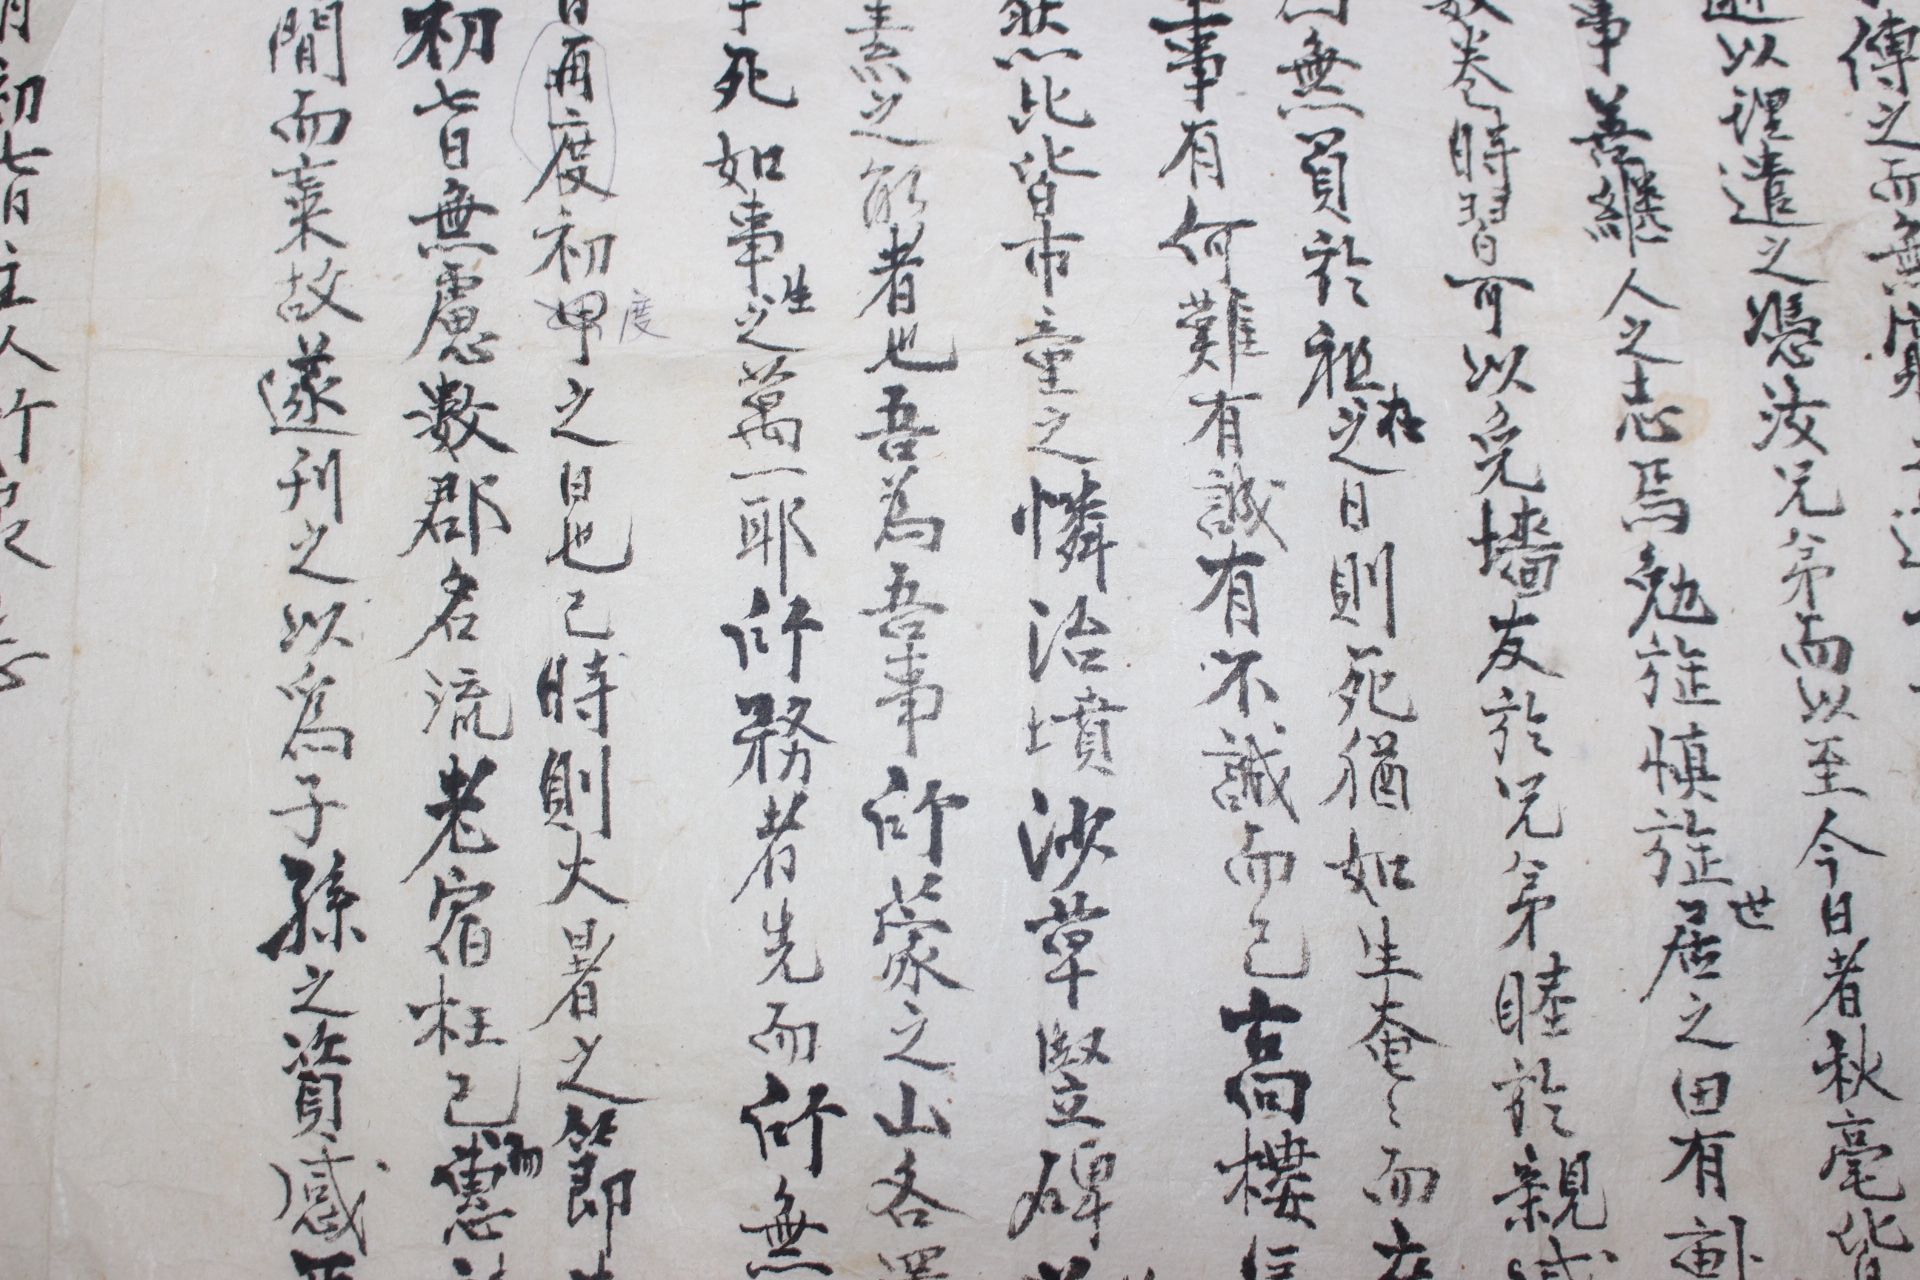 傳之而無實
以理遣之憑汝兄弟而以至今日者秋毫皆
事善繼人之志焉勉旃慎旃居世之田有
卷時習可以免墻友於兄弟睦於親
無負於祖之日則死猶如生奄〻而在
事有何難有誠有不誠而已高樓
然此皆市童之憐治墳沙草竪碑
素之能者也吾為吾事所蒙之山各
死如事生之萬一耶所務者先而所無
日再度初度之日也已時則大暑之節
初七日無慮數郡名流老宿枉已
聞而棄故遂刊之以為子孫之資感
月初七日主人竹